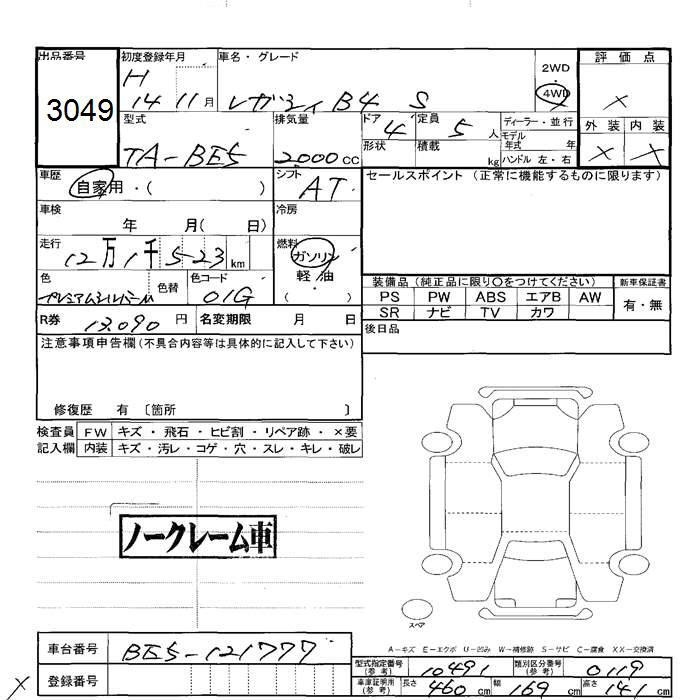 出品番号 初度登録年月 車名・グレード 2WD 評価点
3049 H 14 11月 レガシィB4 S 4WD ×
外装 内装
型式 排気量 ドア 4 定員 5人 ディーラー・並行 × ×
TA-BE5 2000cc 形状 積載 kg モデル年式 年
ハンドル 左・右
車歴 自家用・( ) シフト AT セールスポイント (正常に機能するものに限ります)
車検 年 月( 日) 冷房
走行 12万1千523km 燃料 ガソリン
軽油
( ・ )
色 色替 色コード 01G 装備品 (純正品に限り○をつけてください) 新車保証書
PS PW ABS エアB AW 有・無
SR ナビ TV カワ
R券 13.090円 名変期限 月 日 後日品
注意事項申告欄(不具合内容等は具体的に記入して下さい)
修復歴 有 〔箇所 〕
検査員 FW キズ・飛石・ヒビ割・リペア跡・×要
記入欄 内装 キズ・汚レ・コゲ・穴・スレ・キレ・破レ
ノークレーム車
スペア
A-キズ E-エクボ U-凹み W-補修跡 S-サビ C-腐食 XX-交換済
車台番号 BE5-121777 型式指定番号(参考) 10491 類別区分番号(参考) 0119
× 登録番号 車庫証明用(参考) 長さ 460cm 幅 169cm 高さ 141cm